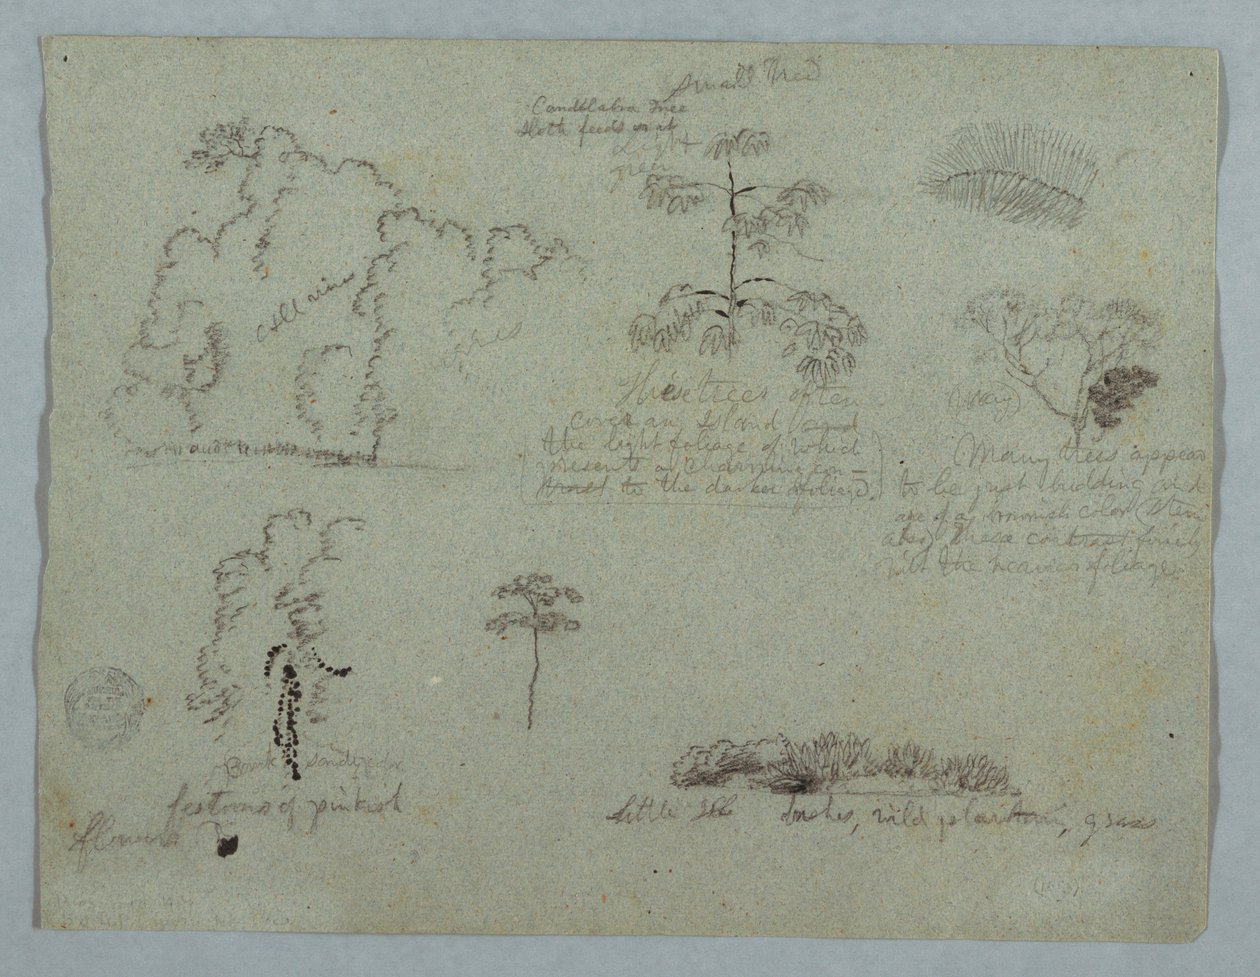 Small Tree
Candelabra Tree
Sloth feeds on it
Light
green
All vine
These trees often
cover an Island and
the light foliage of which
presents a charming con-
trast to the darker foliage.
(May)
Many trees appear
to be just budding and
are of a brownish color (stem
also) these contrast finely
with the heavier foliage
Bank sandy color
festoons of pinkish
flowers
Little Isle bushes, wild plantain, grass